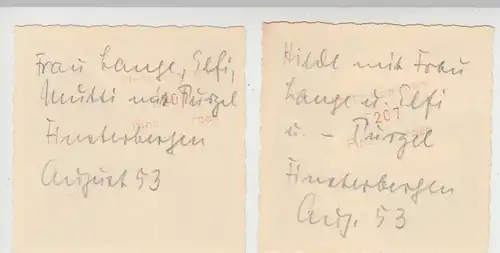 Frau Lange, Elfi,
Mutti mit Purzel
Finsterbergen
August 53
Hilde mit Frau
Lange u. Elfi
u. - Purzel
Finsterbergen
Aug. 53
207